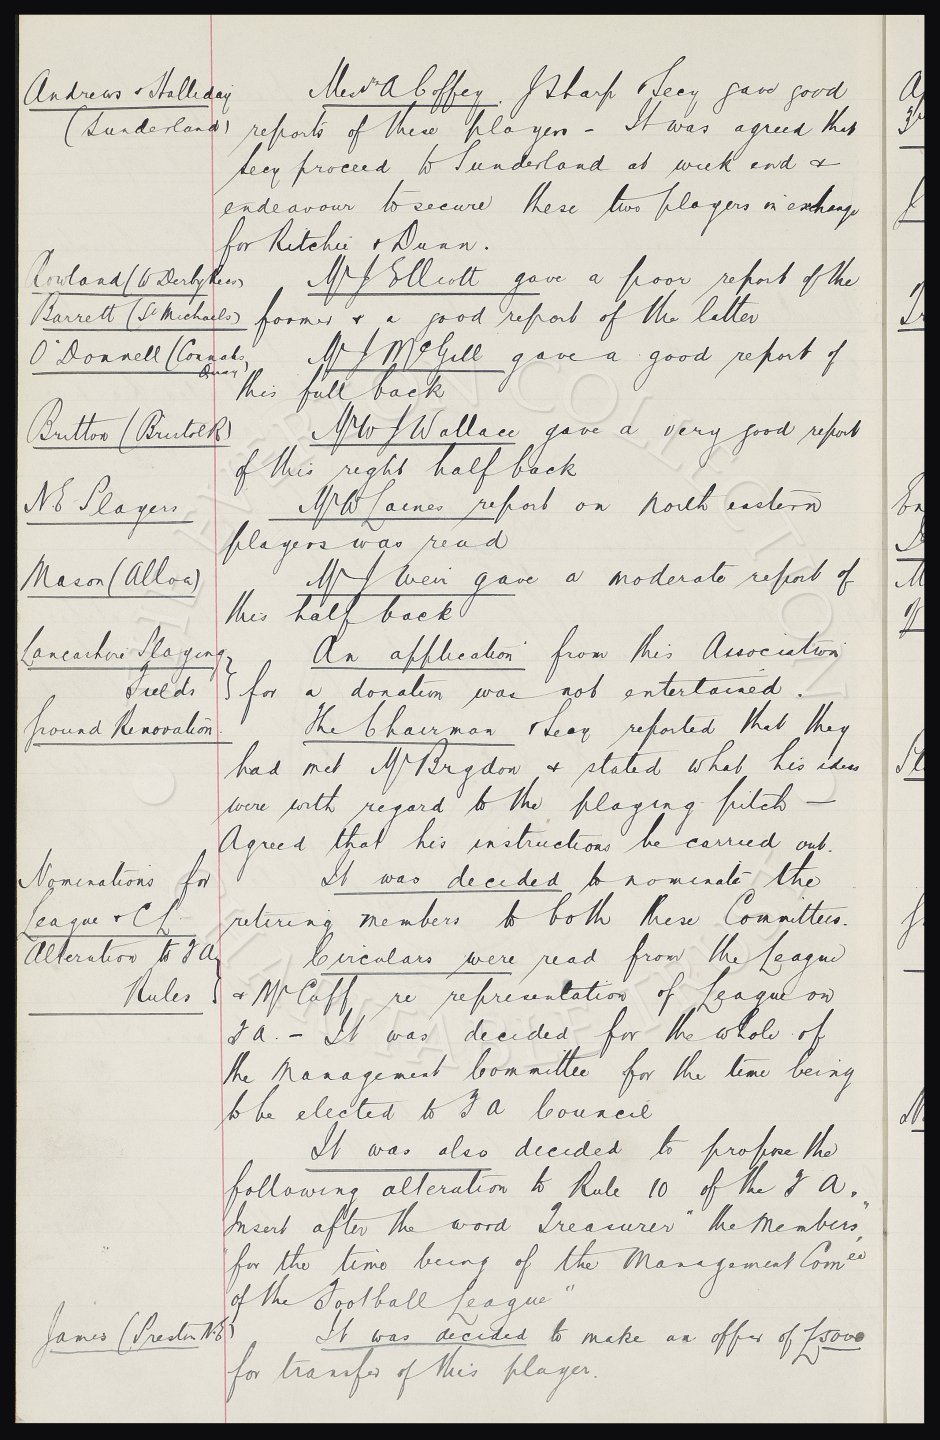 Andrews & Halliday Messrs A Coffey, J Sharp & Secy gave good
(Sunderland) reports of these players - It was agreed that
Secy proceed to Sunderland at week end &
endeavour to secure these two players in exchange
for Ritchie & Dunn.
Rowland (W Derbyshire) Mr J Elliott gave a poor report of the
Barrett (St Michaels) former & a good report of the latter
O'Donnell (Connahs Quay) Mr J McGill gave a good report of
this full back
Britton (Bristol R) Mr W J Wallace gave a very good report
of this right half back
N E Players Mr W Laines report on North eastern
players was read
Mason (Alloa) Mr J Weir gave a moderate report of
this half back
Lancashire Playing An application from this Association
Fields } for a donation was not entertained.
Ground Renovation The Chairman & Secy reported that they
had met Mr Brydon & stated what his ideas
were with regard to the playing pitch -
Agreed that his instructions be carried out.
Nominations for It was decided to nominate the
League & C L retiring members to both these Committees.
Alteration to F A Circulars were read from the League
Rules } & Mr Cuff re representation of League on
F A. - It was decided for the whole of
the Management Committee for the time being
to be elected to F A Council
It was also decided to propose the
following alteration to Rule 10 of the F A.
Insert after the word Treasurer "the Members,
for the time being of the Management Comee
of the Football League"
James (Preston N E) It was decided to make an offer of £5000
for transfer of this player.